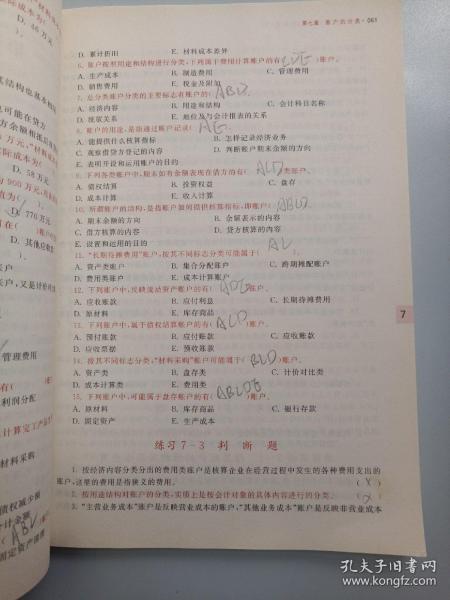 第七章 账户的分类·061
D. 累计折旧 E. 材料成本差异
6. 账户按用途和结构进行分类,下列属于费用计算账户的有( CDE )账户。
A. 生产成本 B. 制造费用 C. 管理费用
D. 销售费用 E. 税金及附加
7. 总分类账户分类的主要标志有账户的( ABD )。
A. 经济内容 B. 用途和结构 C. 会计科目名称
D. 统驭关系 E. 地位及与会计报表的关系
8. 账户的用途,是指通过账户记录( AE )。
A. 能提供什么核算指标 B. 怎样记录经济业务
C. 观察借贷方登记的内容 D. 判断账户期末余额的方向
E. 表明开设和运用账户的目的
9. 下列各类账户中,期末如有余额表现在借方的有( )类账户。
A. 债权结算 B. 投资权益 C. 盘存
D. 成本计算 E. 收入计算
10. 所谓账户的结构,是指账户如何提供核算指标,即账户( ABCD )
A. 期末余额的方向 B. 余额表示的内容
C. 借方核算的内容 D. 贷方核算的内容
E. 设置和运用的目的
11. “长期待摊费用”账户,按其不同标志分类可能属于( )。
A. 资产类账户 B. 集合分配账户 C. 跨期摊配账户
D. 费用类账户 E. 成本计算类账户
12. 下列账户中,反映流动资产账户的有( ADE )账户。
A. 应收账款 B. 应付利息 C. 长期待摊费用
D. 原材料 E. 库存商品
13. 下列账户中,属于债权结算账户的有( )账户。
A. 预付账款 B. 应付账款 C. 应收账款
D. 应收票据 E. 预收账款
14. 按其不同标志分类,“材料采购”账户可能属于( )账户。
A. 资产类 B. 盘存类 C. 计价对比类
D. 成本计算类 E. 费用类
15. 下列账户中,可能属于盘存账户的有( ABCDE )账户。
A. 原材料 B. 库存商品 C. 银行存款
D. 固定资产 E. 生产成本
练习7-3 判 断 题
1. 按经济内容分类分出的费用类账户是核算企业在经营过程中发生的各种费用支出的
账户,这里的费用是指狭义的费用。 ( X )
2. 按用途结构对账户的分类,实质上是按会计对象的具体内容进行的分类。 ( X )
3. “主营业务成本”账户是反映营业成本的账户,“其他业务成本”账户是反映非营业成本
7
D. 46 万元
D. 58 万元
D. 770 万元
管理费用
利润分配
材料采购
孔夫子旧书网
book.kongfz.com